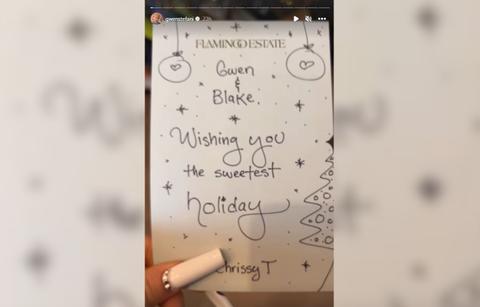 gwenstefani 22h
FLAMINGO ESTATE
Gwen
&
Blake.
Wishing you
the sweetest
holiday
Chrissy T